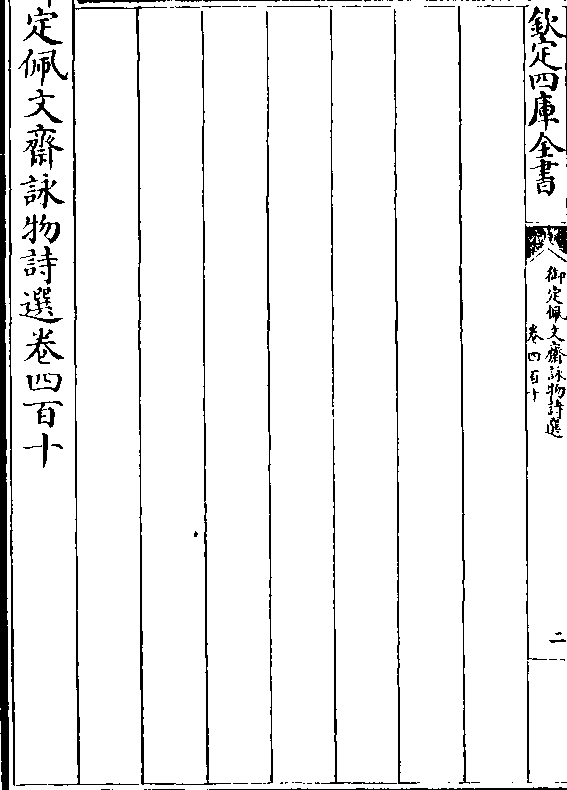 欽定四庫全書
御定佩文齋詠物詩選
卷四百十
二
定佩文齋詠物詩選卷四百十